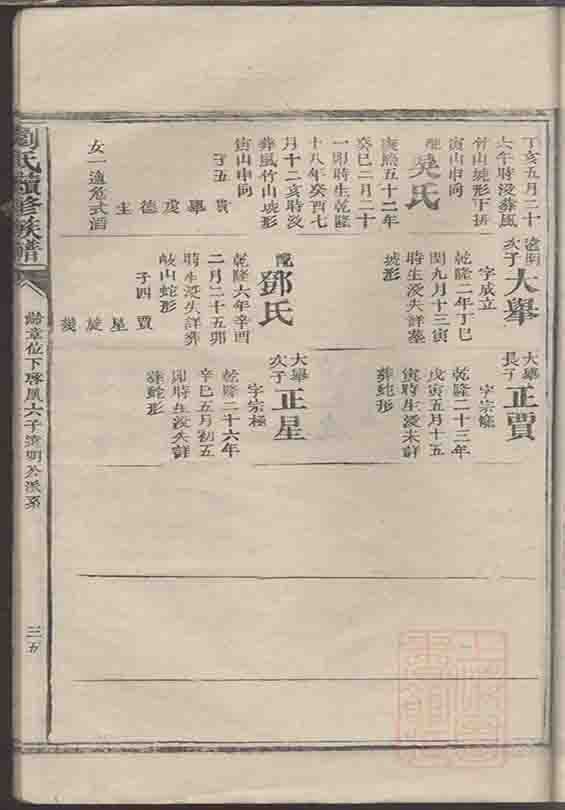 丁亥五月二十
六年時没葬風
竹山坡形下扦
寅山申向
配吳氏
康熙五十二年
癸巳二月二十
一卯時生乾隆
十八年癸酉七
月十二亥時没
葬風竹山坡形
寅山申向
子五
貴
舉
虞
德
主
女一適危式滔
遠明次子大舉
字成立
乾隆二年丁巳
閏九月十三寅
時生没失詳墓
坡形
配鄧氏
乾隆六年辛酉
二月二十五卯
時生没失詳葬
岐山蛇形
子四
賈
星
旋
璣
大舉長子正賈
字宗
乾隆二十三年
戊寅五月十五
寅時生没未詳
葬蛇形
大舉次子正星
字宗極
乾隆二十六年
辛巳五月初五
卯時生没失詳
葬蛇形
劉氏續修族譜
章位下 風六子遠明公派系
三五